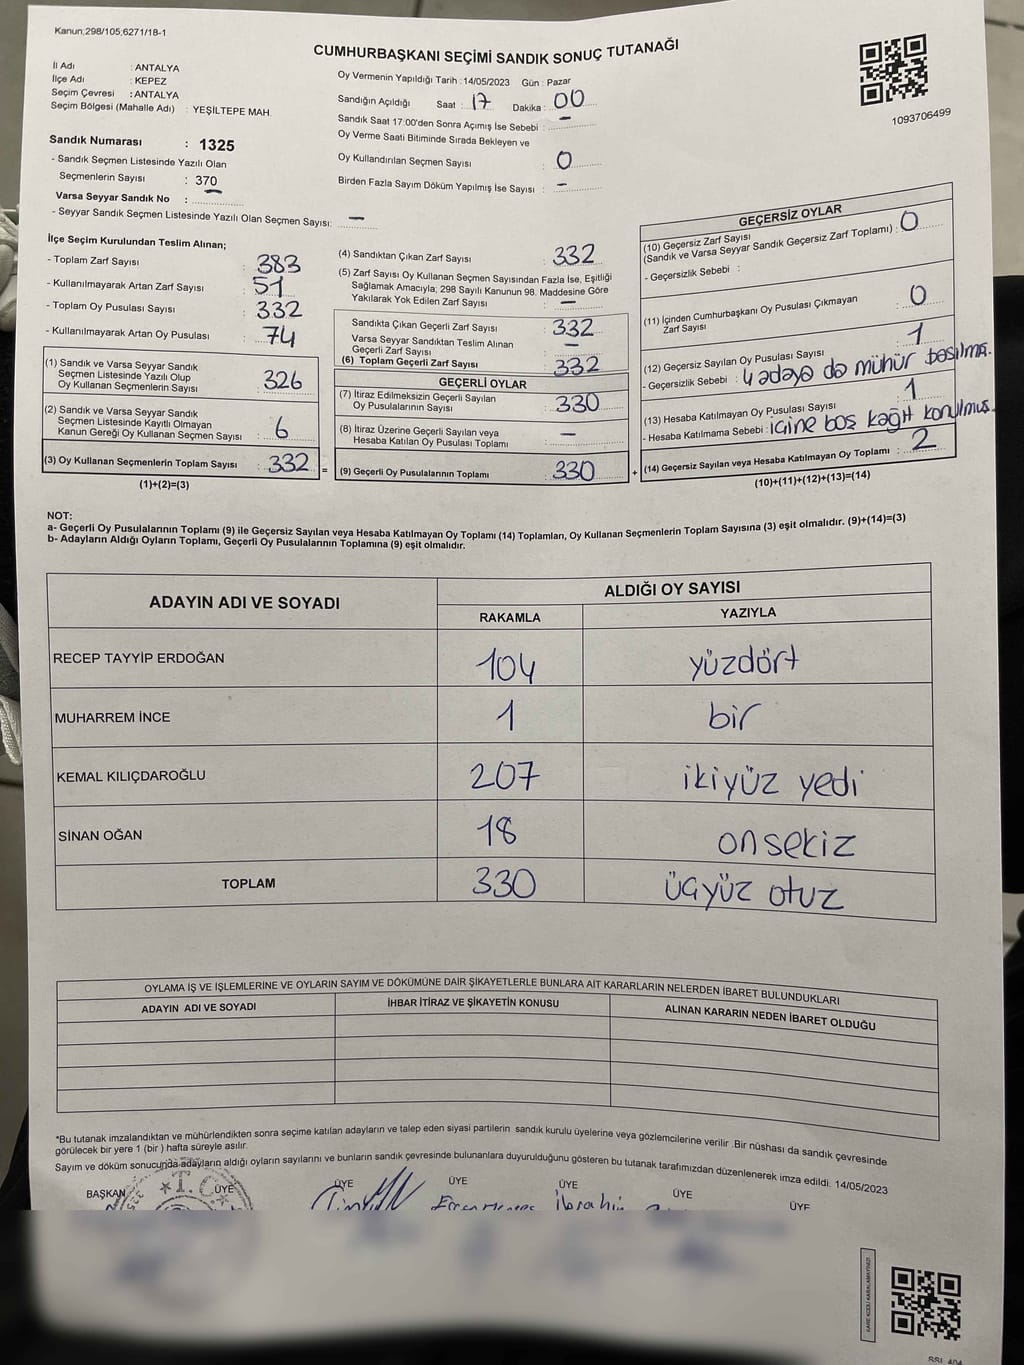 Kanun;298/105;6271/18-1
CUMHURBAŞKANI SEÇİMİ SANDIK SONUÇ TUTANAĞI
İl Adı : ANTALYA
İlçe Adı : KEPEZ
Seçim Çevresi : ANTALYA
Seçim Bölgesi (Mahalle Adı) : YEŞİLTEPE MAH.
Oy Vermenin Yapıldığı Tarih :14/05/2023 Gün : Pazar
Sandığın Açıldığı Saat : 17 Dakika : 00
Sandık Saat 17:00'den Sonra Açımış İse Sebebi : –
Oy Verme Saati Bitiminde Sırada Bekleyen ve
Oy Kullandırılan Seçmen Sayısı : 0
Birden Fazla Sayım Döküm Yapılmış İse Sayısı : –
1093706499
Sandık Numarası : 1325
- Sandık Seçmen Listesinde Yazılı Olan
Seçmenlerin Sayısı : 370
Varsa Seyyar Sandık No : –
- Seyyar Sandık Seçmen Listesinde Yazılı Olan Seçmen Sayısı: –
İlçe Seçim Kurulundan Teslim Alınan;
- Toplam Zarf Sayısı : 383
- Kullanılmayarak Artan Zarf Sayısı : 51
- Toplam Oy Pusulası Sayısı : 332
- Kullanılmayarak Artan Oy Pusulası : 74
(1) Sandık ve Varsa Seyyar Sandık
Seçmen Listesinde Yazılı Olup
Oy Kullanan Seçmenlerin Sayısı : 326
(2) Sandık ve Varsa Seyyar Sandık
Seçmen Listesinde Kayıtlı Olmayan
Kanun Gereği Oy Kullanan Seçmen Sayısı : 6
(3) Oy Kullanan Seçmenlerin Toplam Sayısı : 332 =
(1)+(2)=(3)
(4) Sandıktan Çıkan Zarf Sayısı : 332
(5) Zarf Sayısı Oy Kullanan Seçmen Sayısından Fazla İse, Eşitliği
Sağlamak Amacıyla; 298 Sayılı Kanunun 98. Maddesine Göre
Yakılarak Yok Edilen Zarf Sayısı : –
Sandıkta Çıkan Geçerli Zarf Sayısı : 332
Varsa Seyyar Sandıktan Teslim Alınan
Geçerli Zarf Sayısı : –
(6) Toplam Geçerli Zarf Sayısı : 332
GEÇERLİ OYLAR
(7) İtiraz Edilmeksizin Geçerli Sayılan
Oy Pusulalarının Sayısı : 330
(8) İtiraz Üzerine Geçerli Sayılan veya
Hesaba Katılan Oy Pusulası Toplamı : –
(9) Geçerli Oy Pusulalarının Toplamı : 330 +
GEÇERSİZ OYLAR
(10) Geçersiz Zarf Sayısı
(Sandık ve Varsa Seyyar Sandık Geçersiz Zarf Toplamı) : 0
- Geçersizlik Sebebi :
(11) İçinden Cumhurbaşkanı Oy Pusulası Çıkmayan
Zarf Sayısı : 0
(12) Geçersiz Sayılan Oy Pusulası Sayısı : 1
- Geçersizlik Sebebi : 4 adaya da mühür basılma.
(13) Hesaba Katılmayan Oy Pusulası Sayısı : 1
- Hesaba Katılmama Sebebi : içine boş kağıt konulmuş.
(14) Geçersiz Sayılan veya Hesaba Katılmayan Oy Toplamı : 2
(10)+(11)+(12)+(13)=(14)
NOT:
a- Geçerli Oy Pusulalarının Toplamı (9) ile Geçersiz Sayılan veya Hesaba Katılmayan Oy Toplamı (14) Toplamları, Oy Kullanan Seçmenlerin Toplam Sayısına (3) eşit olmalıdır. (9)+(14)=(3)
b- Adayların Aldığı Oyların Toplamı, Geçerli Oy Pusulalarının Toplamına (9) eşit olmalıdır.
ADAYIN ADI VE SOYADI ALDIĞI OY SAYISI
RAKAMLA YAZIYLA
RECEP TAYYİP ERDOĞAN 104 yüzdört
MUHARREM İNCE 1 bir
KEMAL KILIÇDAROĞLU 207 ikiyüz yedi
SİNAN OĞAN 18 onsekiz
TOPLAM 330 üçyüz otuz
OYLAMA İŞ VE İŞLEMLERİNE VE OYLARIN SAYIM VE DÖKÜMÜNE DAİR ŞİKAYETLERLE BUNLARA AİT KARARLARIN NELERDEN İBARET BULUNDUKLARI
ADAYIN ADI VE SOYADI İHBAR İTİRAZ VE ŞİKAYETİN KONUSU ALINAN KARARIN NEDEN İBARET OLDUĞU
*Bu tutanak imzalandıktan ve mühürlendikten sonra seçime katılan adayların ve talep eden siyasi partilerin sandık kurulu üyelerine veya gözlemcilerine verilir .Bir nüshası da sandık çevresinde
görülecek bir yere 1 (bir ) hafta süreyle asılır.
Sayım ve döküm sonucunda adayların aldığı oyların sayılarını ve bunların sandık çevresinde bulunanlara duyurulduğunu gösteren bu tutanak tarafımızdan düzenlenerek imza edildi. 14/05/2023
BAŞKAN ÜYE ÜYE ÜYE ÜYE ÜYE ÜYE
T.C.
İbrahim